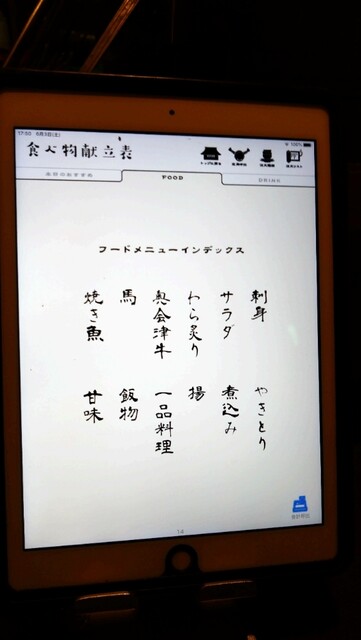 17:00 6月3日(土)
100%
食べ物献立表
FOOD
フードメニューインデックス
刺身
サラダ
わら炙り
奥会津牛
馬
焼き魚
やきとり
煮込み
揚
一品料理
飯物
甘味
14